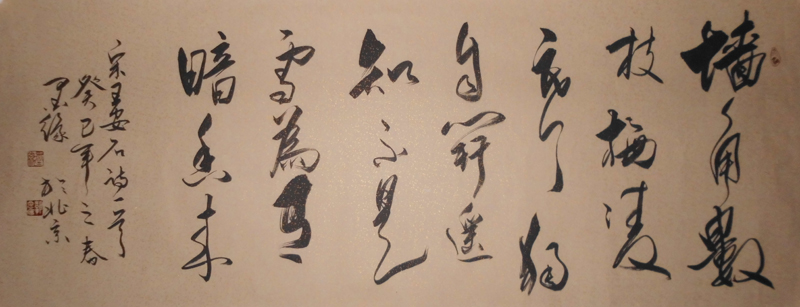 墙角數
枝梅凌
寒独
自開遥
知不是
雪為有
暗香来
宋王安石诗一首
癸巳年之春
墨缘 於北京